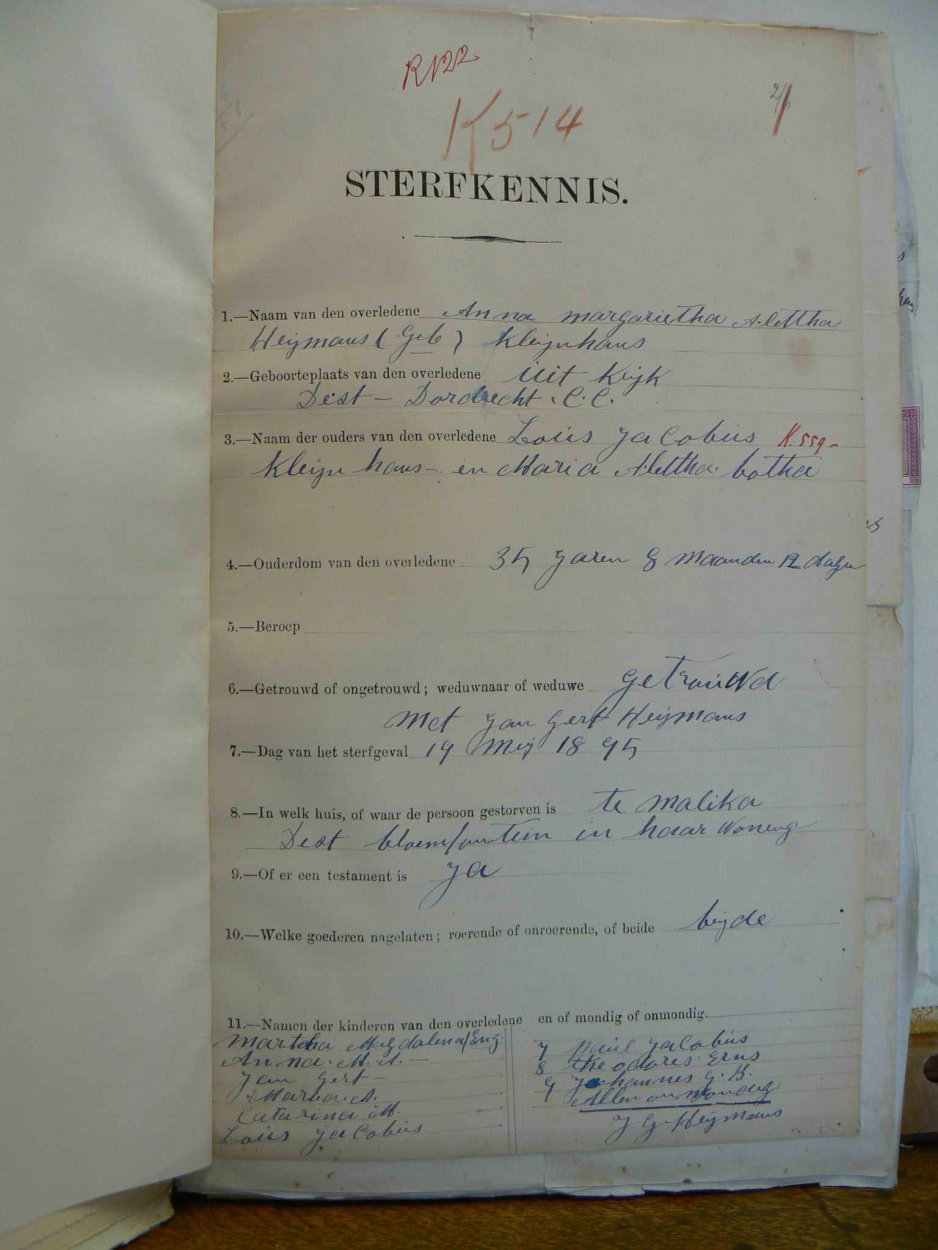 R N22
K514
2/1
STERFKENNIS.
1.—Naam van den overledene Anna margarietha Alettha
Heijmans (Geb) Kleijnhans
2.—Geboorteplaats van den overledene Uit Kijk
Dist – Dordrecht . C.C.
3.—Naam der ouders van den overledene Louis Jacobus K.559-
Kleijn hans – en Maria Alettha botha
4.—Ouderdom van den overledene 35 Jaren 8 Maanden 12 dagen
5.—Beroep
6.—Getrouwd of ongetrouwd; weduwnaar of weduwe getrouwd
Met Jan Gert Heijmans
7.—Dag van het sterfgeval 19 Meij 1895
8.—In welk huis, of waar de persoon gestorven is te Malika
Dist bloemfontein in haar Woneng
9.—Of er een testament is Ja
10.—Welke goederen nagelaten; roerende of onroerende, of beide bijde
11.—Namen der kinderen van den overledene en of mondig of onmondig.
Martha Magdalena
Anna. M. A. –
Jan Gert –
Maria A.
Catarina M.
Louis Jacobus
7 Paul Jacobus
8 Theodores Erns
9 Johannes G. B.
Allen onmondig
J G Heijmans